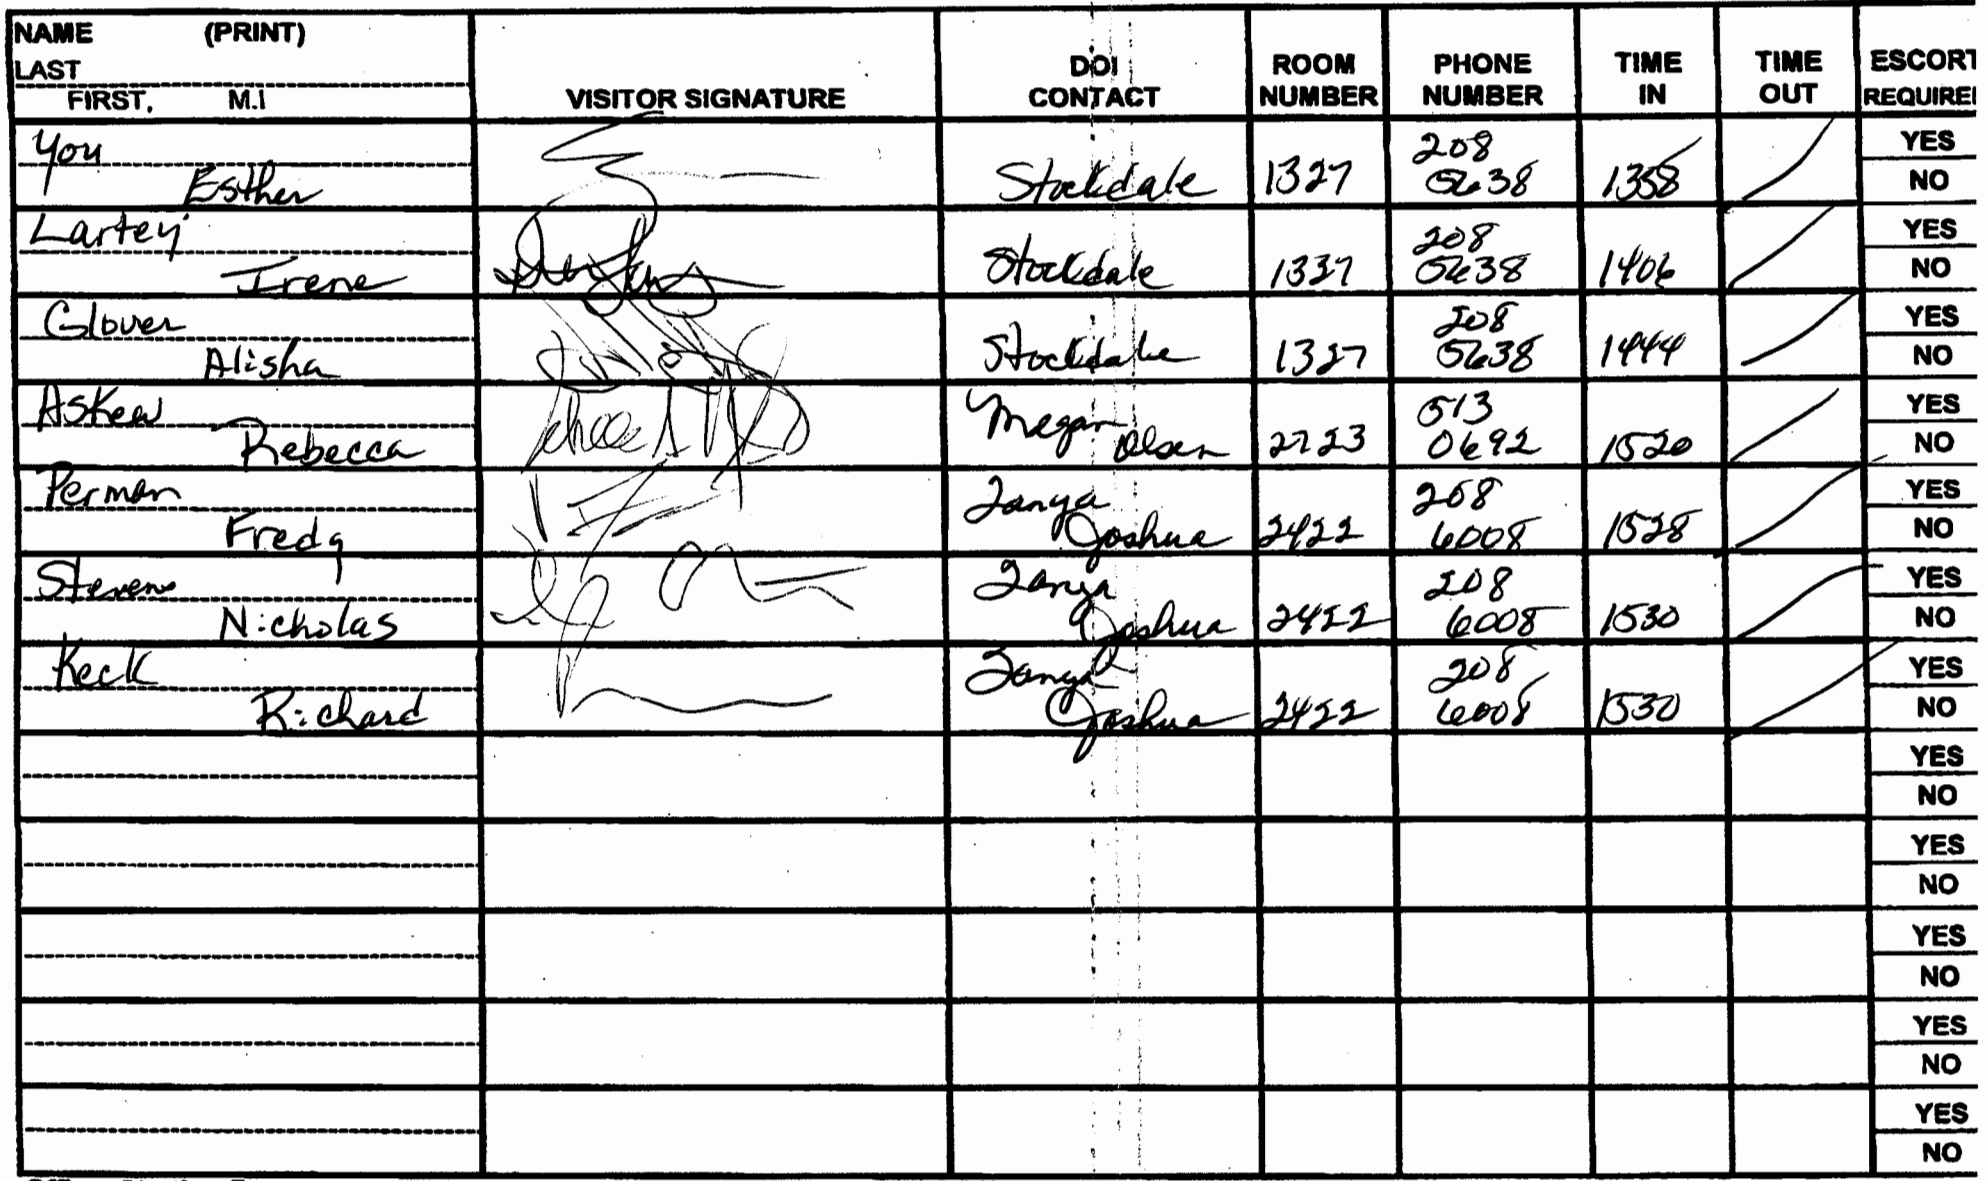 NAME (PRINT)
LAST
FIRST, M.I
VISITOR SIGNATURE
DOI
CONTACT
ROOM
NUMBER
PHONE
NUMBER
TIME
IN
TIME
OUT
ESCORT
REQUIRE
You
Esther
Stockdale
1327
208
5638
1358
YES
NO
Lartey
Irene
Stockdale
1337
208
5638
1406
YES
NO
Glover
Alisha
Stockdale
1327
208
5638
1444
YES
NO
Askew
Rebecca
Megan
Olsen
2723
513
0692
1520
YES
NO
Perman
Freda
Tanya
Joshua
2422
208
6008
1528
YES
NO
Stevens
Nicholas
Tanya
Joshua
2422
208
6008
1530
YES
NO
Keck
Richard
Tanya
Joshua
2422
208
6008
1530
YES
NO
YES
NO
YES
NO
YES
NO
YES
NO
YES
NO